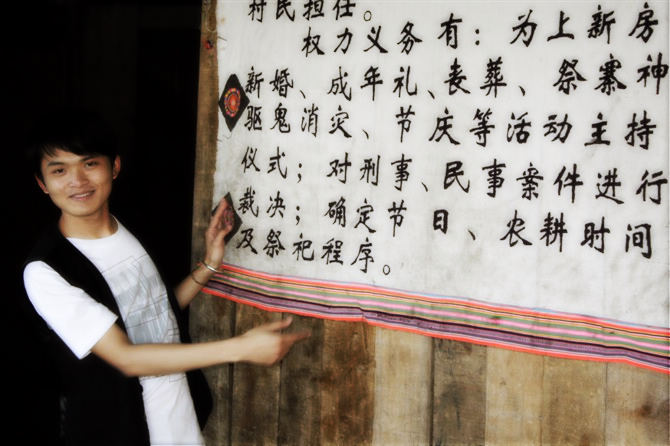 村民担任。
权力义务有：为上新房
新婚、成年礼、丧葬、祭寨神
驱鬼消灾、节庆等活动主持
仪式；对刑事、民事案件进行
裁决；确定节日、农耕时间
及祭祀程序。